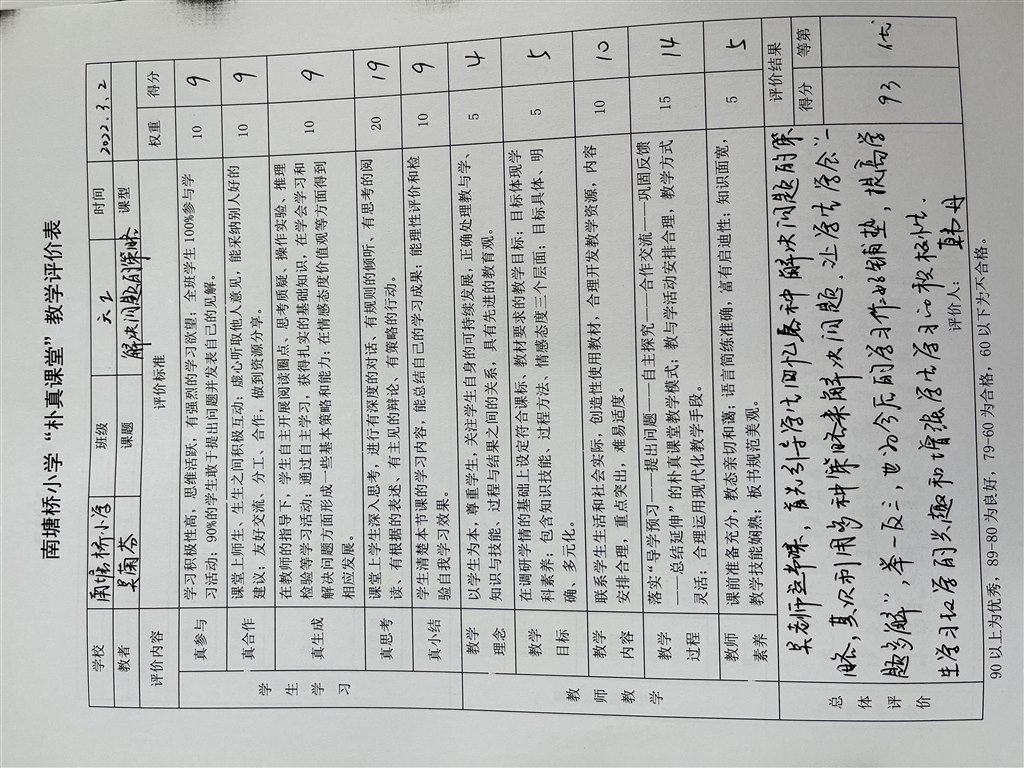 南塘桥小学“朴真课堂”教学评价表
学校 南塘桥小学 班级 六2 时间 2022.3.2
教者 吴菊芬 课题 解决问题的策略 课型
评价内容 评价标准 权重 得分
学生学习
真参与 学习积极性高，思维活跃，有强烈的学习欲望；全班学生100%参与学 10 9
习活动；90%的学生敢于提出问题并发表自己的见解。
真合作 课堂上师生、生生之间积极互动；虚心听取他人意见，能采纳别人好的 10 9
建议；友好交流、分工、合作，做到资源分享。
真生成 在教师的指导下，学生自主开展阅读圈点、思考质疑、操作实验、推理 10 9
检验等学习活动；通过自主学习，获得扎实的基础知识，在学会学习和
解决问题方面形成一些基本策略和能力；在情感态度价值观等方面得到
相应发展。
真思考 课堂上学生深入思考，进行有深度的对话、有规则的倾听、有思考的阅 20 19
读、有根据的表述、有主见的辩论、有策略的行动。
真小结 学生清楚本节课的学习内容，能总结自己的学习成果；能理性评价和检 10 9
验自我学习效果。
教师教学
教学理念 以学生为本，尊重学生，关注学生自身的可持续发展，正确处理教与学、 5 4
知识与技能、过程与结果之间的关系，具有先进的教育观。
教学目标 在调研学情的基础上设定符合课标、教材要求的教学目标；目标体现学 5 5
科素养；包含知识技能、过程方法、情感态度三个层面；目标具体、明
确、多元化。
教学内容 联系学生生活和社会实际，创造性使用教材，合理开发教学资源，内容 10 10
安排合理，重点突出，难易适度。
教学过程 落实“导学预习——提出问题——自主探究——合作交流——巩固反馈 15 14
——总结延伸”的朴真课堂教学模式；教与学活动安排合理，教学方式
灵活；合理运用现代化教学手段。
教师素养 课前准备充分，教态亲切和蔼；语言简练准确，富有启迪性；知识面宽， 5 5
教学技能娴熟；板书规范美观。
总体评价
吴老师这节课，首先引导学生回忆各种解决问题的策
略，其次利用多种策略来解决问题，让学生学会“一
题多解”，举一反三，也为今后的学习作好铺垫，提高学
生学习数学的兴趣和增强学生学习的积极性。
评价人： 韩丹
评价结果
得分 等第
93 优
90以上为优秀，89-80为良好，79-60为合格，60以下为不合格。